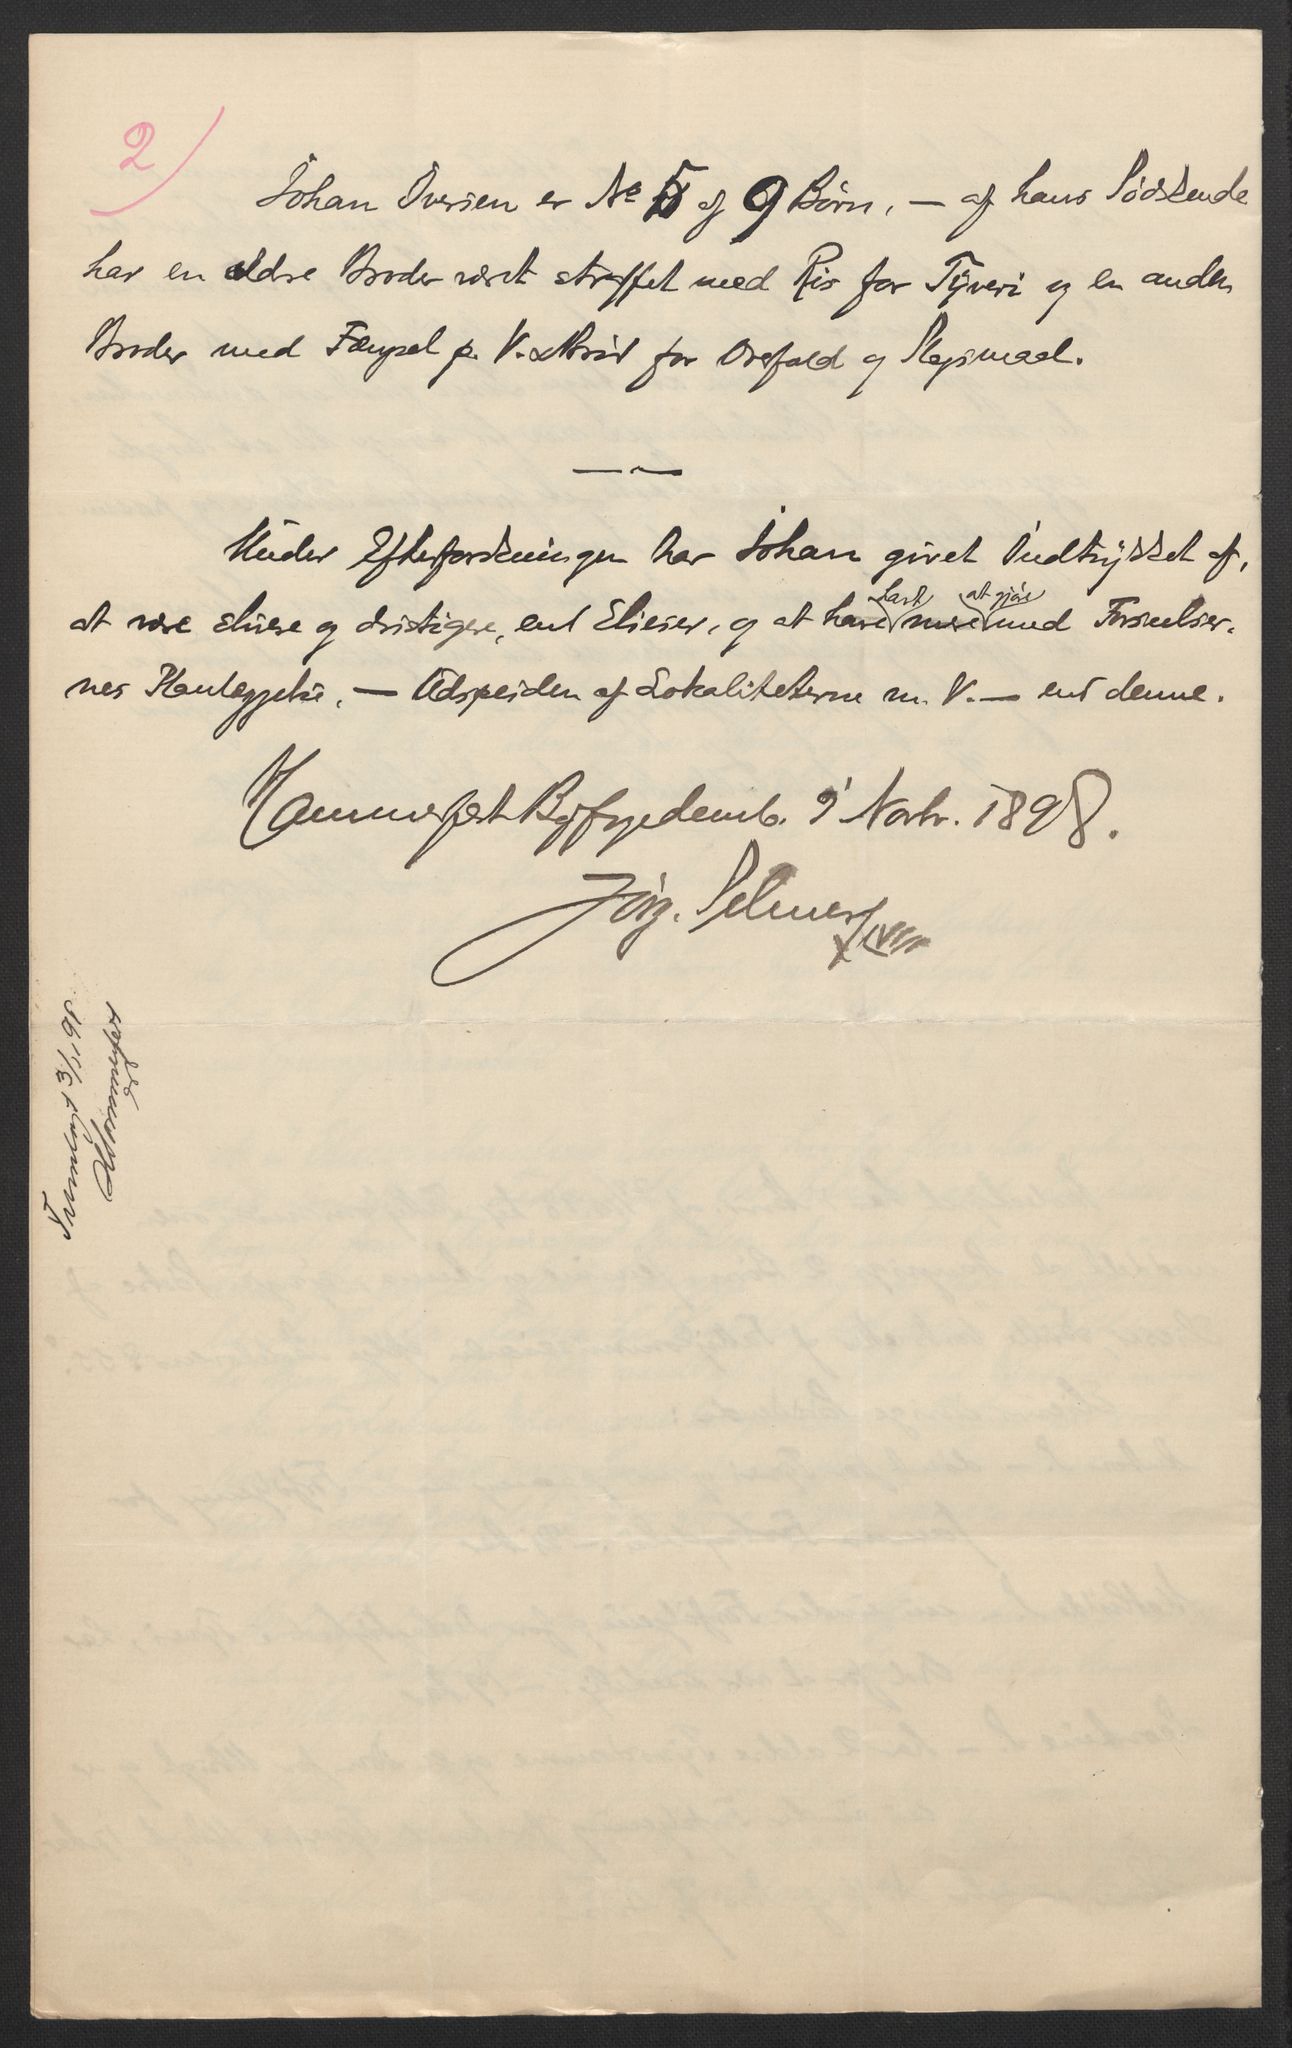 2)
Johan Iversen er No 5 af 9 Børn, — af hans Södskende
har en eldre Broder vært straffet med Ris for Tyveri og en anden
Broder med Fængsel p. V. & Brød for Overfald og Slagsmaal.
Under Efterforskningen har Johan givet Indtrykket af,
at være sluere og dristigere, end Elieser, og at have havt mere at gjøre med Forsøelser-
nes Planlæggelse, — Udspeiden af Lokaliteterne m. V. — end denne.
Hammerfest Byfogedemb. 9' Novbr. 1898.
Jörg. Selmer
Tromsø 13/11 98